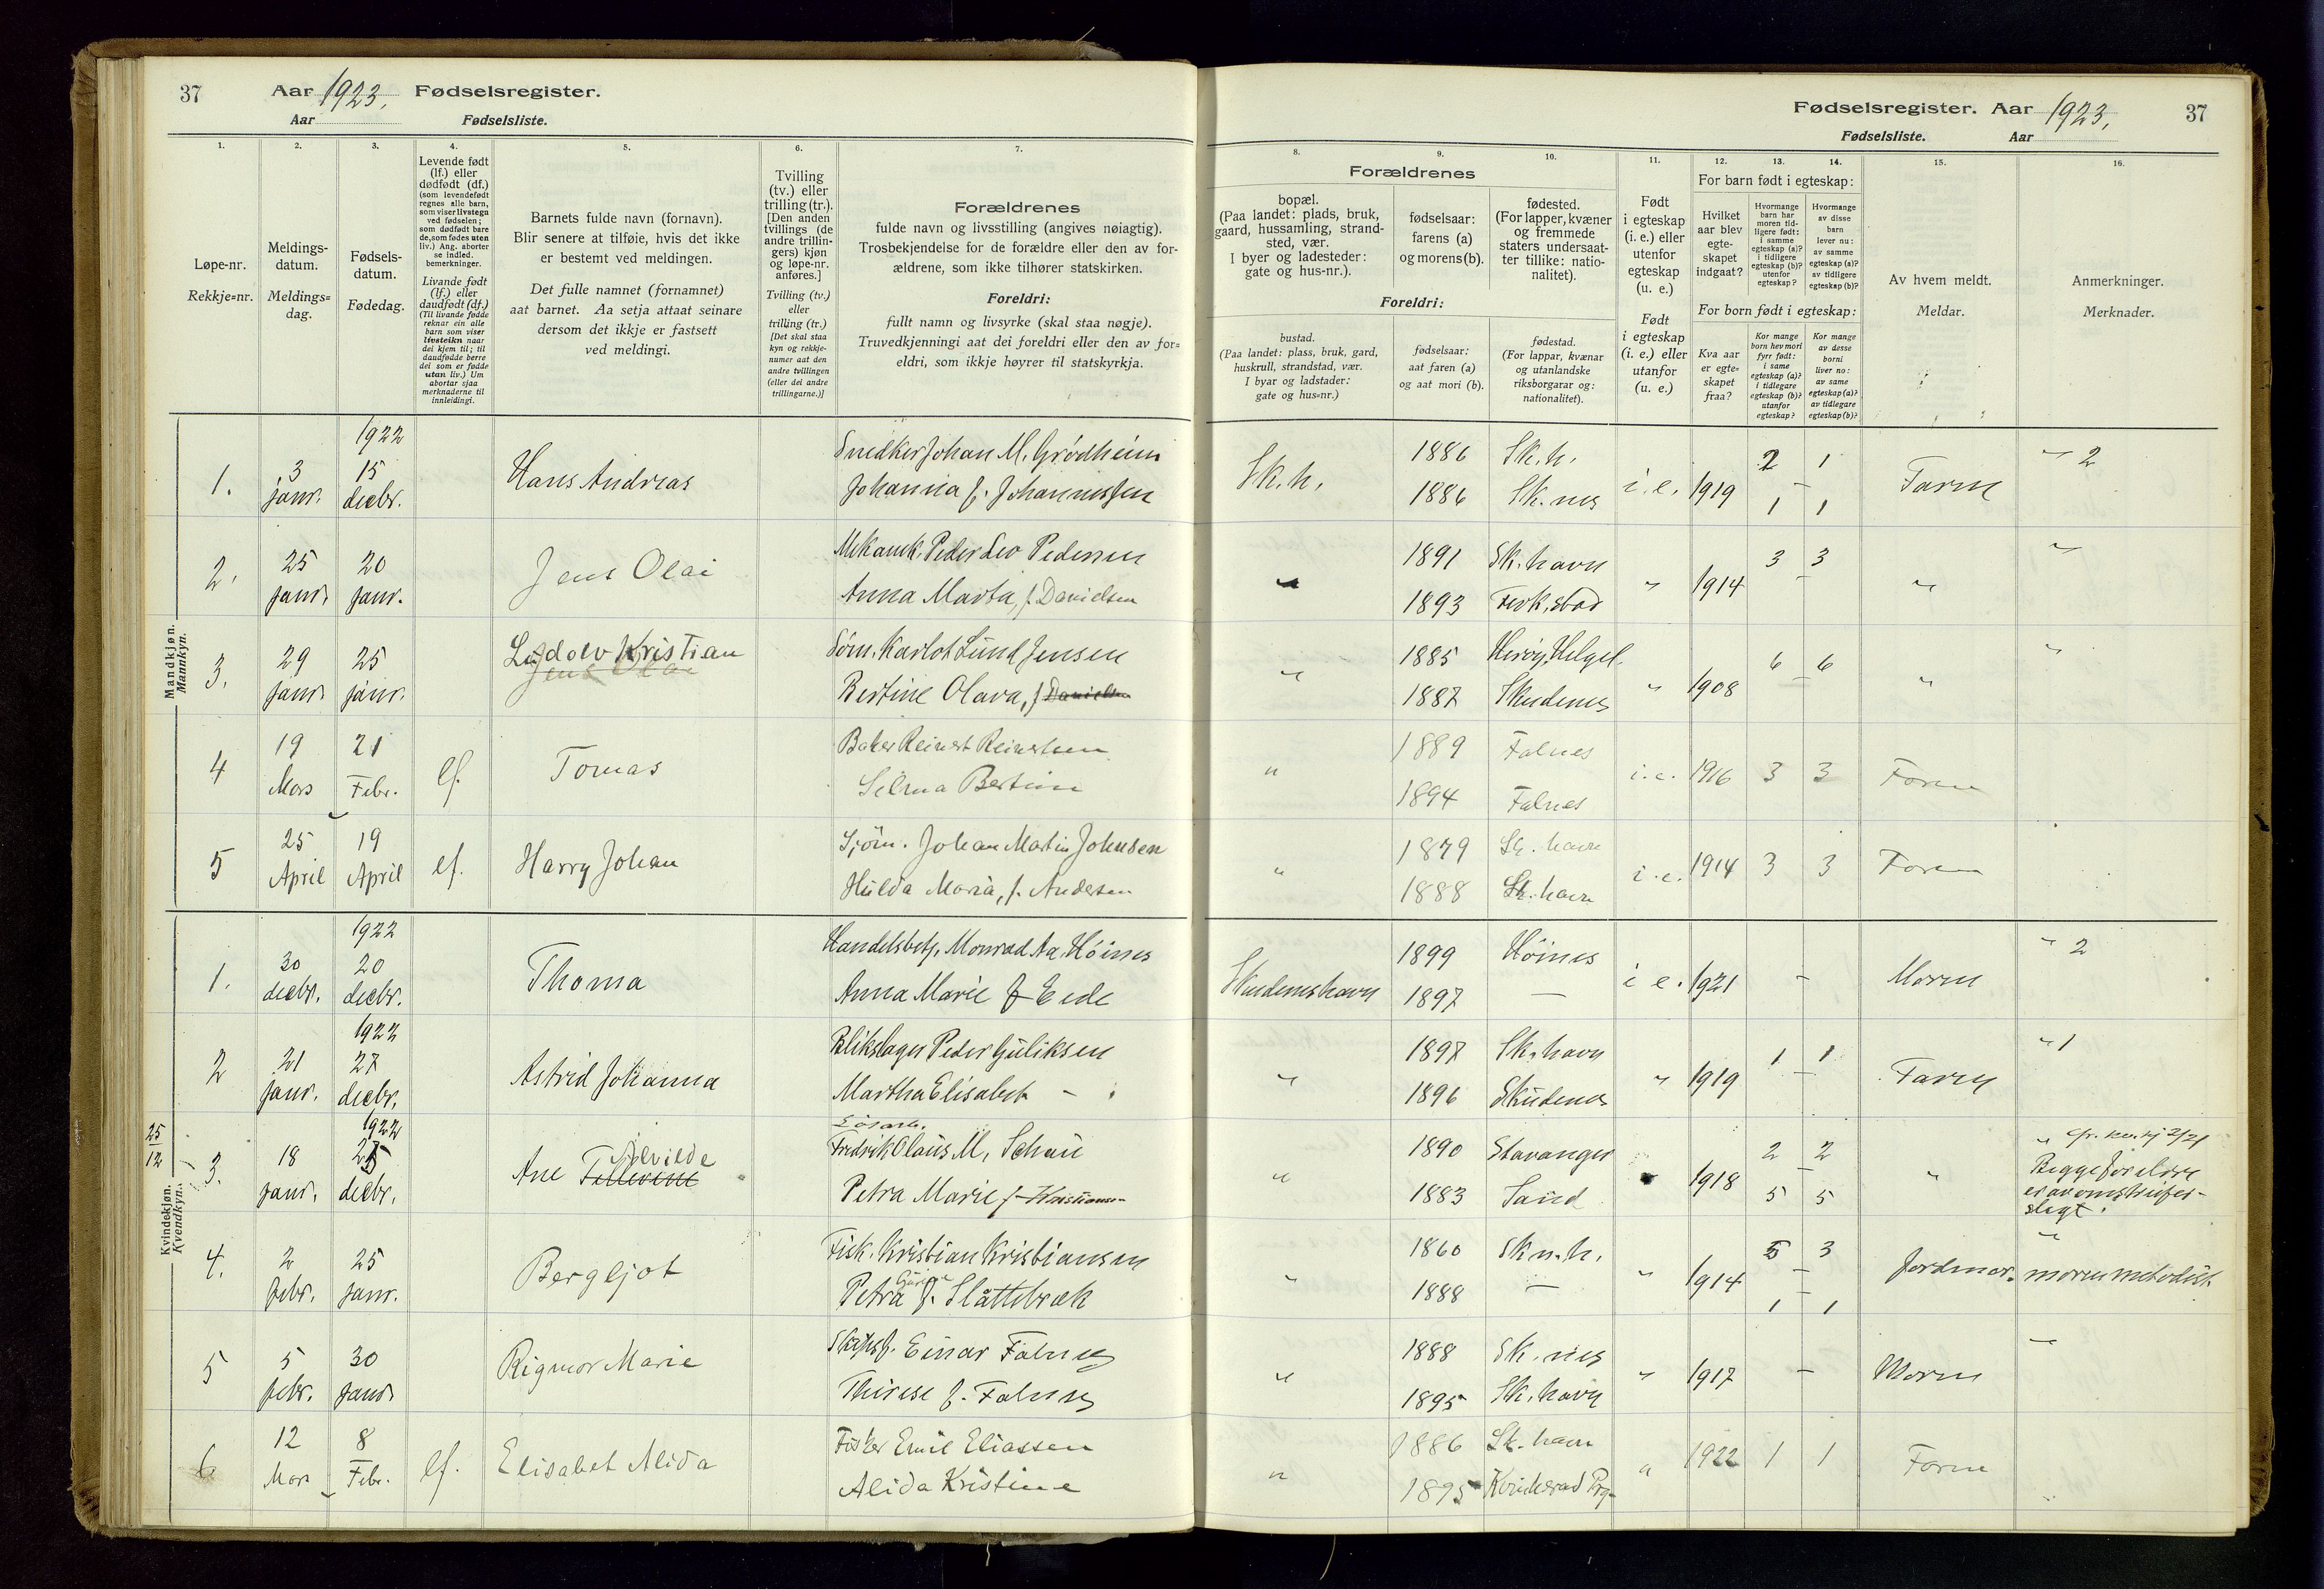 37 Aar 1923. Fødselsregister.
Aar Fødselsliste.
Fødselsregister. Aar 1923. 37
Fødselsliste. Aar
1. Løpe-nr. Rekkje=nr.
2. Meldings-datum. Meldings=dag.
3. Fødsels-datum. Fødedag.
4. Levende født
(lf.) eller
dødfødt (df.)
(som levendefødt
regnes alle barn,
som viser livstegn
ved fødselen;
som dødfødt bare
de, som fødes uten
liv.) Ang. aborter
se indled.
bemerkninger.
Livande født
(lf.) eller
daudfødt (df.)
(Til livande fødde
reknar ein alle
barn som viser
livsteikn naar
dei kjem til; til
daudfødde berre
dei som er fødde
utan liv.) Um
abortar sjaa
merknaderne til
innleidingi.
5. Barnets fulde navn (fornavn).
Blir senere at tilføie, hvis det ikke
er bestemt ved meldingen.
Det fulle namnet (fornamnet)
aat barnet. Aa setja attaat seinare
dersom det ikkje er fastsett
ved meldingi.
6. Tvilling
(tv.) eller
trilling (tr.).
[Den anden
tvillings (de
andre trillin-
gers) kjøn
og løpe-nr.
anføres.]
Tvilling (tv.)
eller
trilling (tr.)
[Det skal staa
kyn og rekkje-
numer aat den
andre tvillingen
(eller dei andre
trillingarne.)]
7. Forældrenes
fulde navn og livsstilling (angives nøiagtig).
Trosbekjendelse for de forældre eller den av for-
ældrene, som ikke tilhører statskirken.
Foreldri:
fullt namn og livsyrke (skal staa nøgje).
Truvedkjenningi aat dei foreldri eller den av for=
eldri, som ikkje høyrer til statskyrkja.
Forældrenes
8. bopæl.
(Paa landet: plads, bruk,
gaard, hussamling, strand-
sted, vær.
I byer og ladesteder:
gate og hus-nr.).
Foreldri:
bustad.
(Paa landet: plass, bruk, gard,
huskrull, strandstad, vær.
I byar og ladstader:
gate og hus=nr.)
9. fødselsaar:
farens (a)
og morens (b).
fødselsaar:
aat faren (a)
og aat mori (b).
10. fødested.
(For lapper, kvæner
og fremmede
staters undersaat-
ter tillike: natio-
nalitet).
fødestad.
(For lappar, kvænar
og utanlandske
riksborgarar og:
nationalitet).
11. Født
i egteskap
(i. e.) eller
utenfor
egteskap
(u. e.)
Født
i egteskap
(i. e.) eller
utanfor
(u. e.)
For barn født i egteskap:
12. Hvilket
aar blev
egte-
skapet
indgaat?
13. Hvormange
barn har
moren tid-
ligere født:
i samme
egteskap (a)?
i tidligere
egteskap (b)?
utenfor
egteskap?
14. Hvormange
av disse
barn
lever nu:
av samme
egteskap (a)?
av tidligere
egteskap (b)?
For born født i egteskap:
Kva aar
er egte=
skapet
fraa?
Kor mange
born hev mori
fyrr født:
i same
egteskap (a)?
i tidlegare
egteskap (b)?
utanfor
egteskap?
Kor mange
av desse
borni
liver no:
av same
egteskap (a)?
av tidlegare
egteskap (b)?
15. Av hvem meldt.
Meldar.
16. Anmerkninger.
Merknader.
Mandkjøn.
Mannkyn.
1. 3 janr. 1922 15 decbr. Hans Andreas Snedker Johan M. Grødheim
Johanna f. Johannessen
Sk.h. 1886 Sk.h. i.e. 1919 2 1 Faren " 2
1886 Sk.nes 1 1
2. 25 janr. 20 janr. Jens Olai Mekanik. Peder Leo Pedersen
Anna Marta, f. Danielsen
" 1891 Sk.havn " 1914 3 3 " "
1893 Fredk.stad
3. 29 janr. 25 janr. Ludolv Kristian
Jens Olai
Søm. Karlot Lund Jensen
Bertine Olava, f. Danielsen
" 1885 Herøy, Helgel. " 1908 6 6 " "
1887 Skudenes
4 19 Mars 21 Febr. lf. Tomas Baker Reinert Reinertsen
Selma Bertine
" 1889 Falnes i.e. 1916 3 3 Faren
1894 Falnes
5 25 April 19 April lf. Harry Johan Sjøm. Johan Martin Johnsen
Hulda Maria, f. Andersen
" 1879 Sk. havn i.e. 1914 3 3 Faren
1888 Sk. havn
Kvindekjøn.
Kvendkyn.
1. 30 decbr. 1922 20 decbr. Thoma Handelsbetj. Monrad Aa. Høines
Anna Marie f Eide
Skudeneshavn 1899 Høines i e. 1921 – Moren " 2
1897 —
2 21 janr. 1922 27 decbr. Astrid Johanna Blikslager Peder Guliksen
Martha Elisabet –
" 1897 Sk.havn " 1919 1 1 Faren " 1
1896 Skudenes
25/12 3. 18 janr. 1922 25 decbr. Ane Tellevine Alvilde
Løsarb.
Fredrik Olaus M. Schau
Petra Marie f Kristiansen
" 1890 Stavanger 1918 2 2 "
1883 Sand 5 5
Begge foreldre
er av omstreifer-
slegt.
4. 2 febr. 25 janr. Bergljot Fisk. Kristian Kristiansen
Petra f. Slåttebræk
" 1860 Sk.n.h. " 1914 5 3 Jordmor. moren metodist.
1888 — 1 1
5 5 febr. 30 janr. Rigmor Marie Skipsf. Einar Falnes
Therese f. Falnes
" 1888 Sk. nes " 1917 – Moren "
1895 Sk. havn
6 12 Mar 8 Febr. lf. Elisabet Alida Fisker Emil Eliassen
Alida Kristine
" 1886 Sk. havn " 1922 1 1 Faren
1895